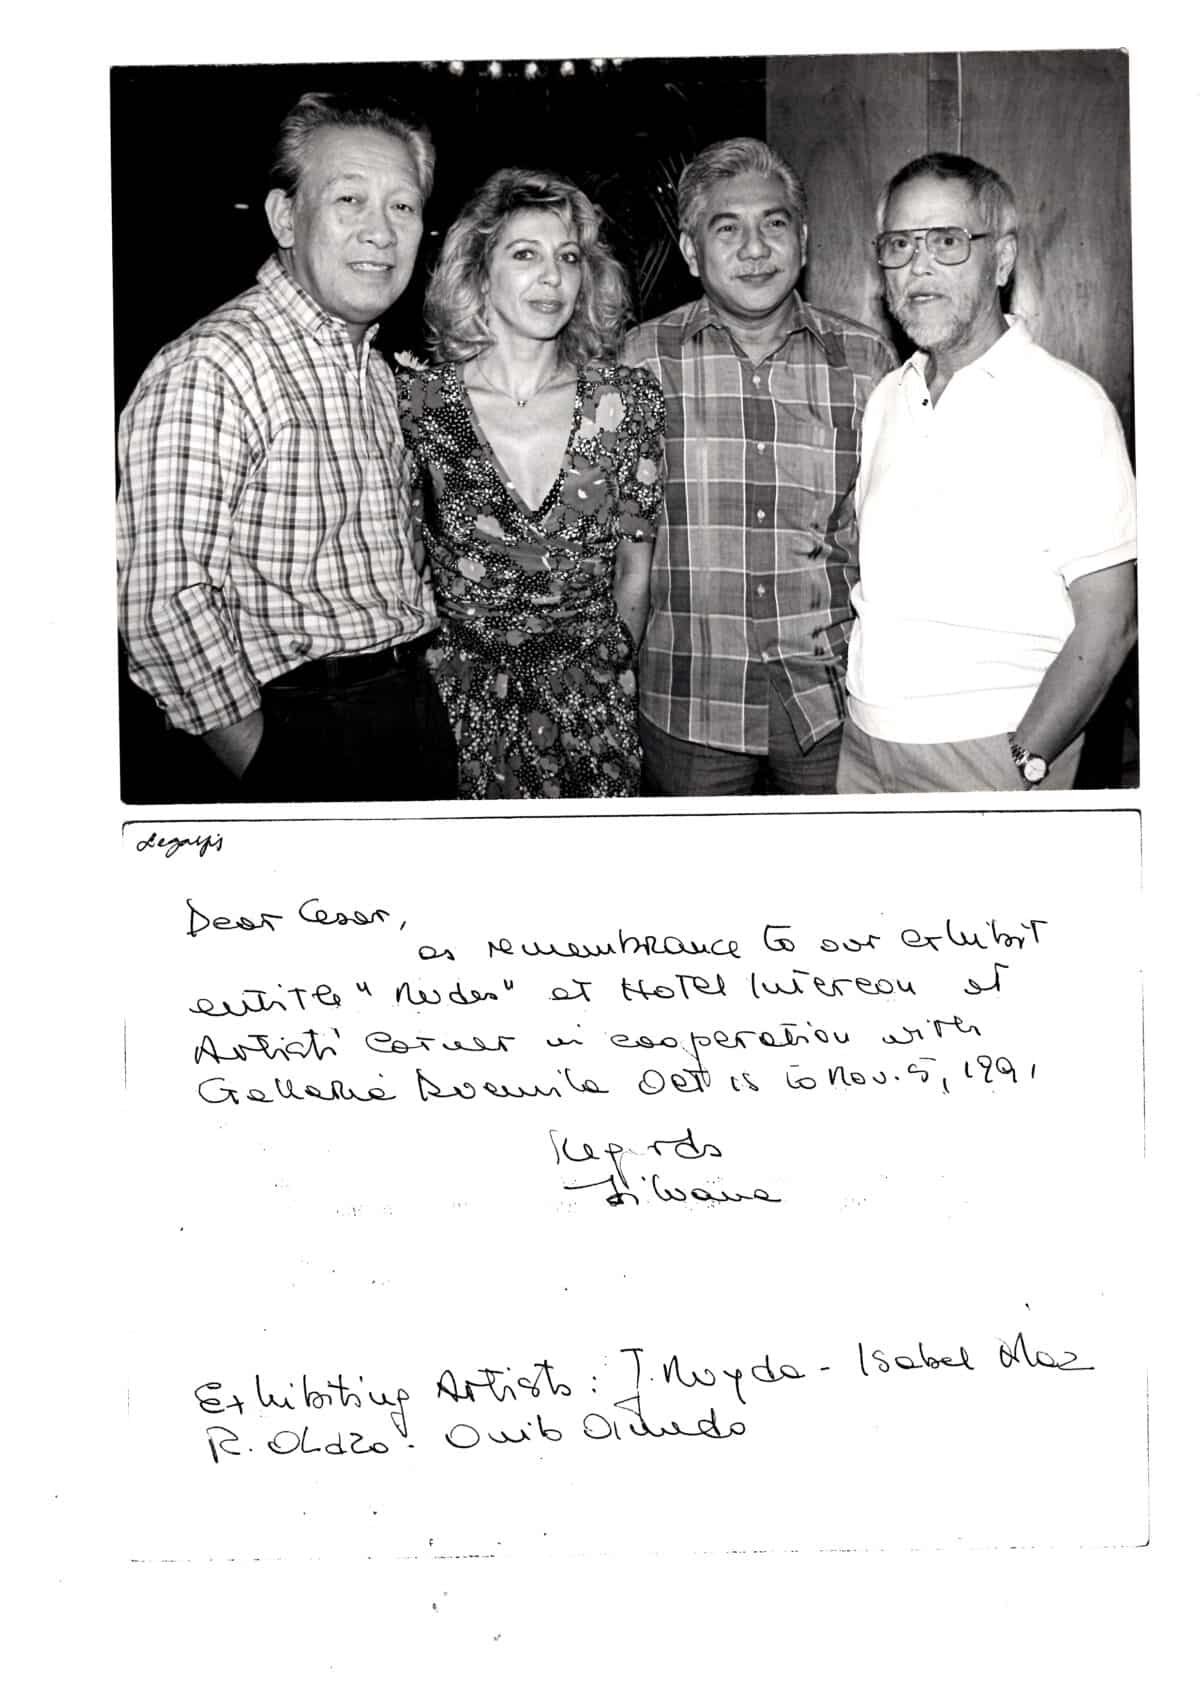 Legaspi
Dear Cesar,
as remembrance to our exhibit
entitle "Nudes" at Hotel Intercon at
Artists' Corner in cooperation with
Gallerie Duemila Oct 15 to Nov. 5, 1991
Regards
Silvana
Exhibiting Artists: J. Moyda - Isabel Diaz
R. Olazo - Onib Olmedo